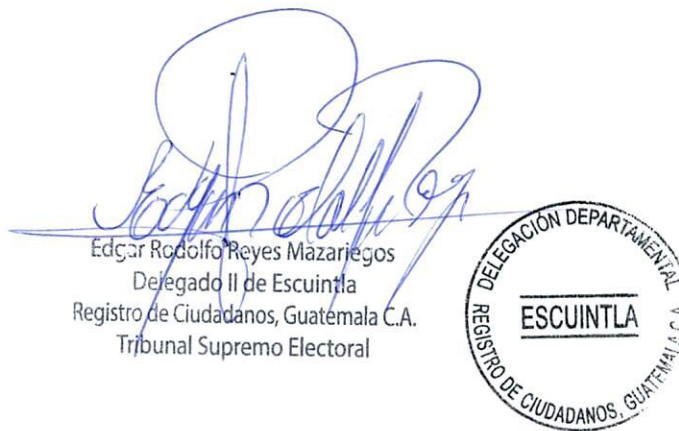 Edgar Rodolfo Reyes Mazariegos
Delegado II de Escuintla
Registro de Ciudadanos, Guatemala C.A.
Tribunal Supremo Electoral
DELEGACIÓN DEPARTAMENTAL
ESCUINTLA
REGISTRO DE CIUDADANOS, GUATEMALA C.A.